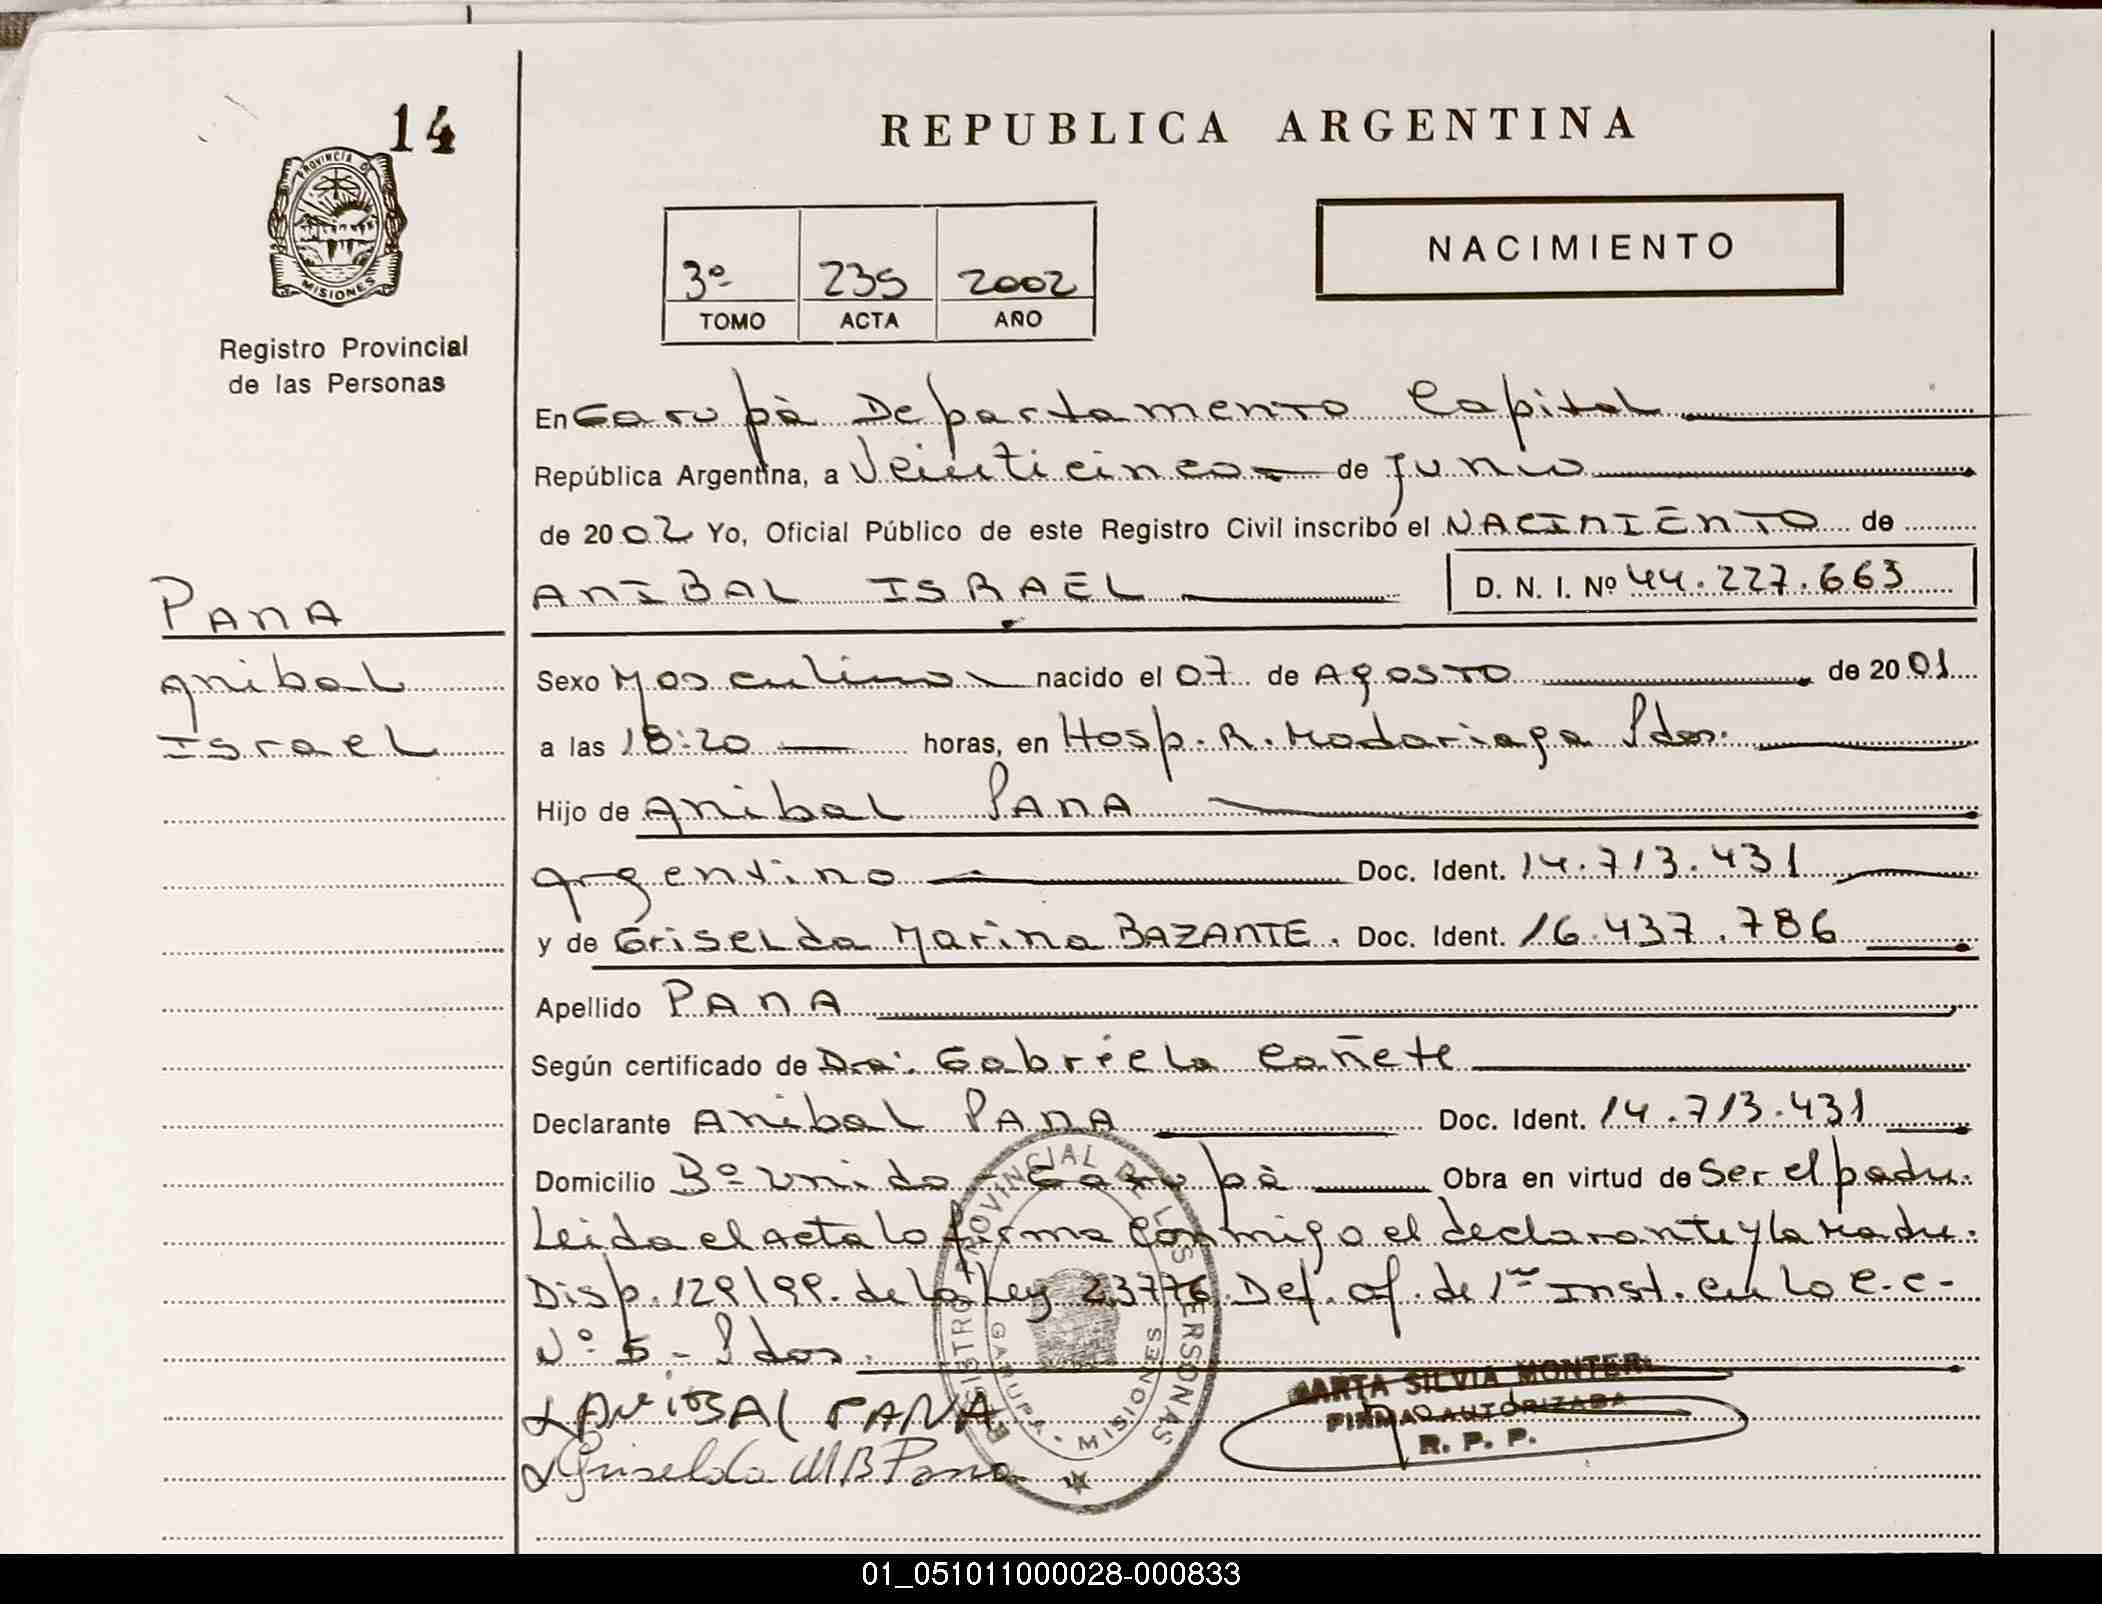 14
REPUBLICA ARGENTINA
PROVINCIA DE
MISIONES
NACIMIENTO
3º 235 2002
TOMO ACTA AÑO
Registro Provincial
de las Personas
En Garupà Departamento Capital
República Argentina, a Veinticinco de Junio
de 2002 Yo, Oficial Público de este Registro Civil inscribo el NACIMIENTO de
ANIBAL ISRAEL D. N. I. Nº 44.227.663
PANA
Anibal
Israel
Sexo Masculino nacido el 07 de Agosto de 2001
a las 18:20 horas, en Hosp. R. Madariaga Pdas.
Hijo de Anibal PANA
argentino Doc. Ident. 14.713.431
y de Griselda Marina BAZANTE. Doc. Ident. 16.437.786
Apellido PANA
Según certificado de Dra. Gabriela Cañete
Declarante Anibal PANA Doc. Ident. 14.713.431
Domicilio Bº Unido - Garupà Obra en virtud de Ser el padre.
Leida el acta lo firma conmigo el declarante y la Madre.
Disp. 129/99. de la Ley 23776 Def. of. de 1ra Inst. en lo C.C-
Nº 5 - Pdas.
ANIBAl PANA
Griselda M B Pana
REGISTRO PROVINCIAL DE LAS PERSONAS
GARUPA - MISIONES
MARTA SILVIA
FIRMA AUTORIZADA
R. P. P.
01_051011000028-000833